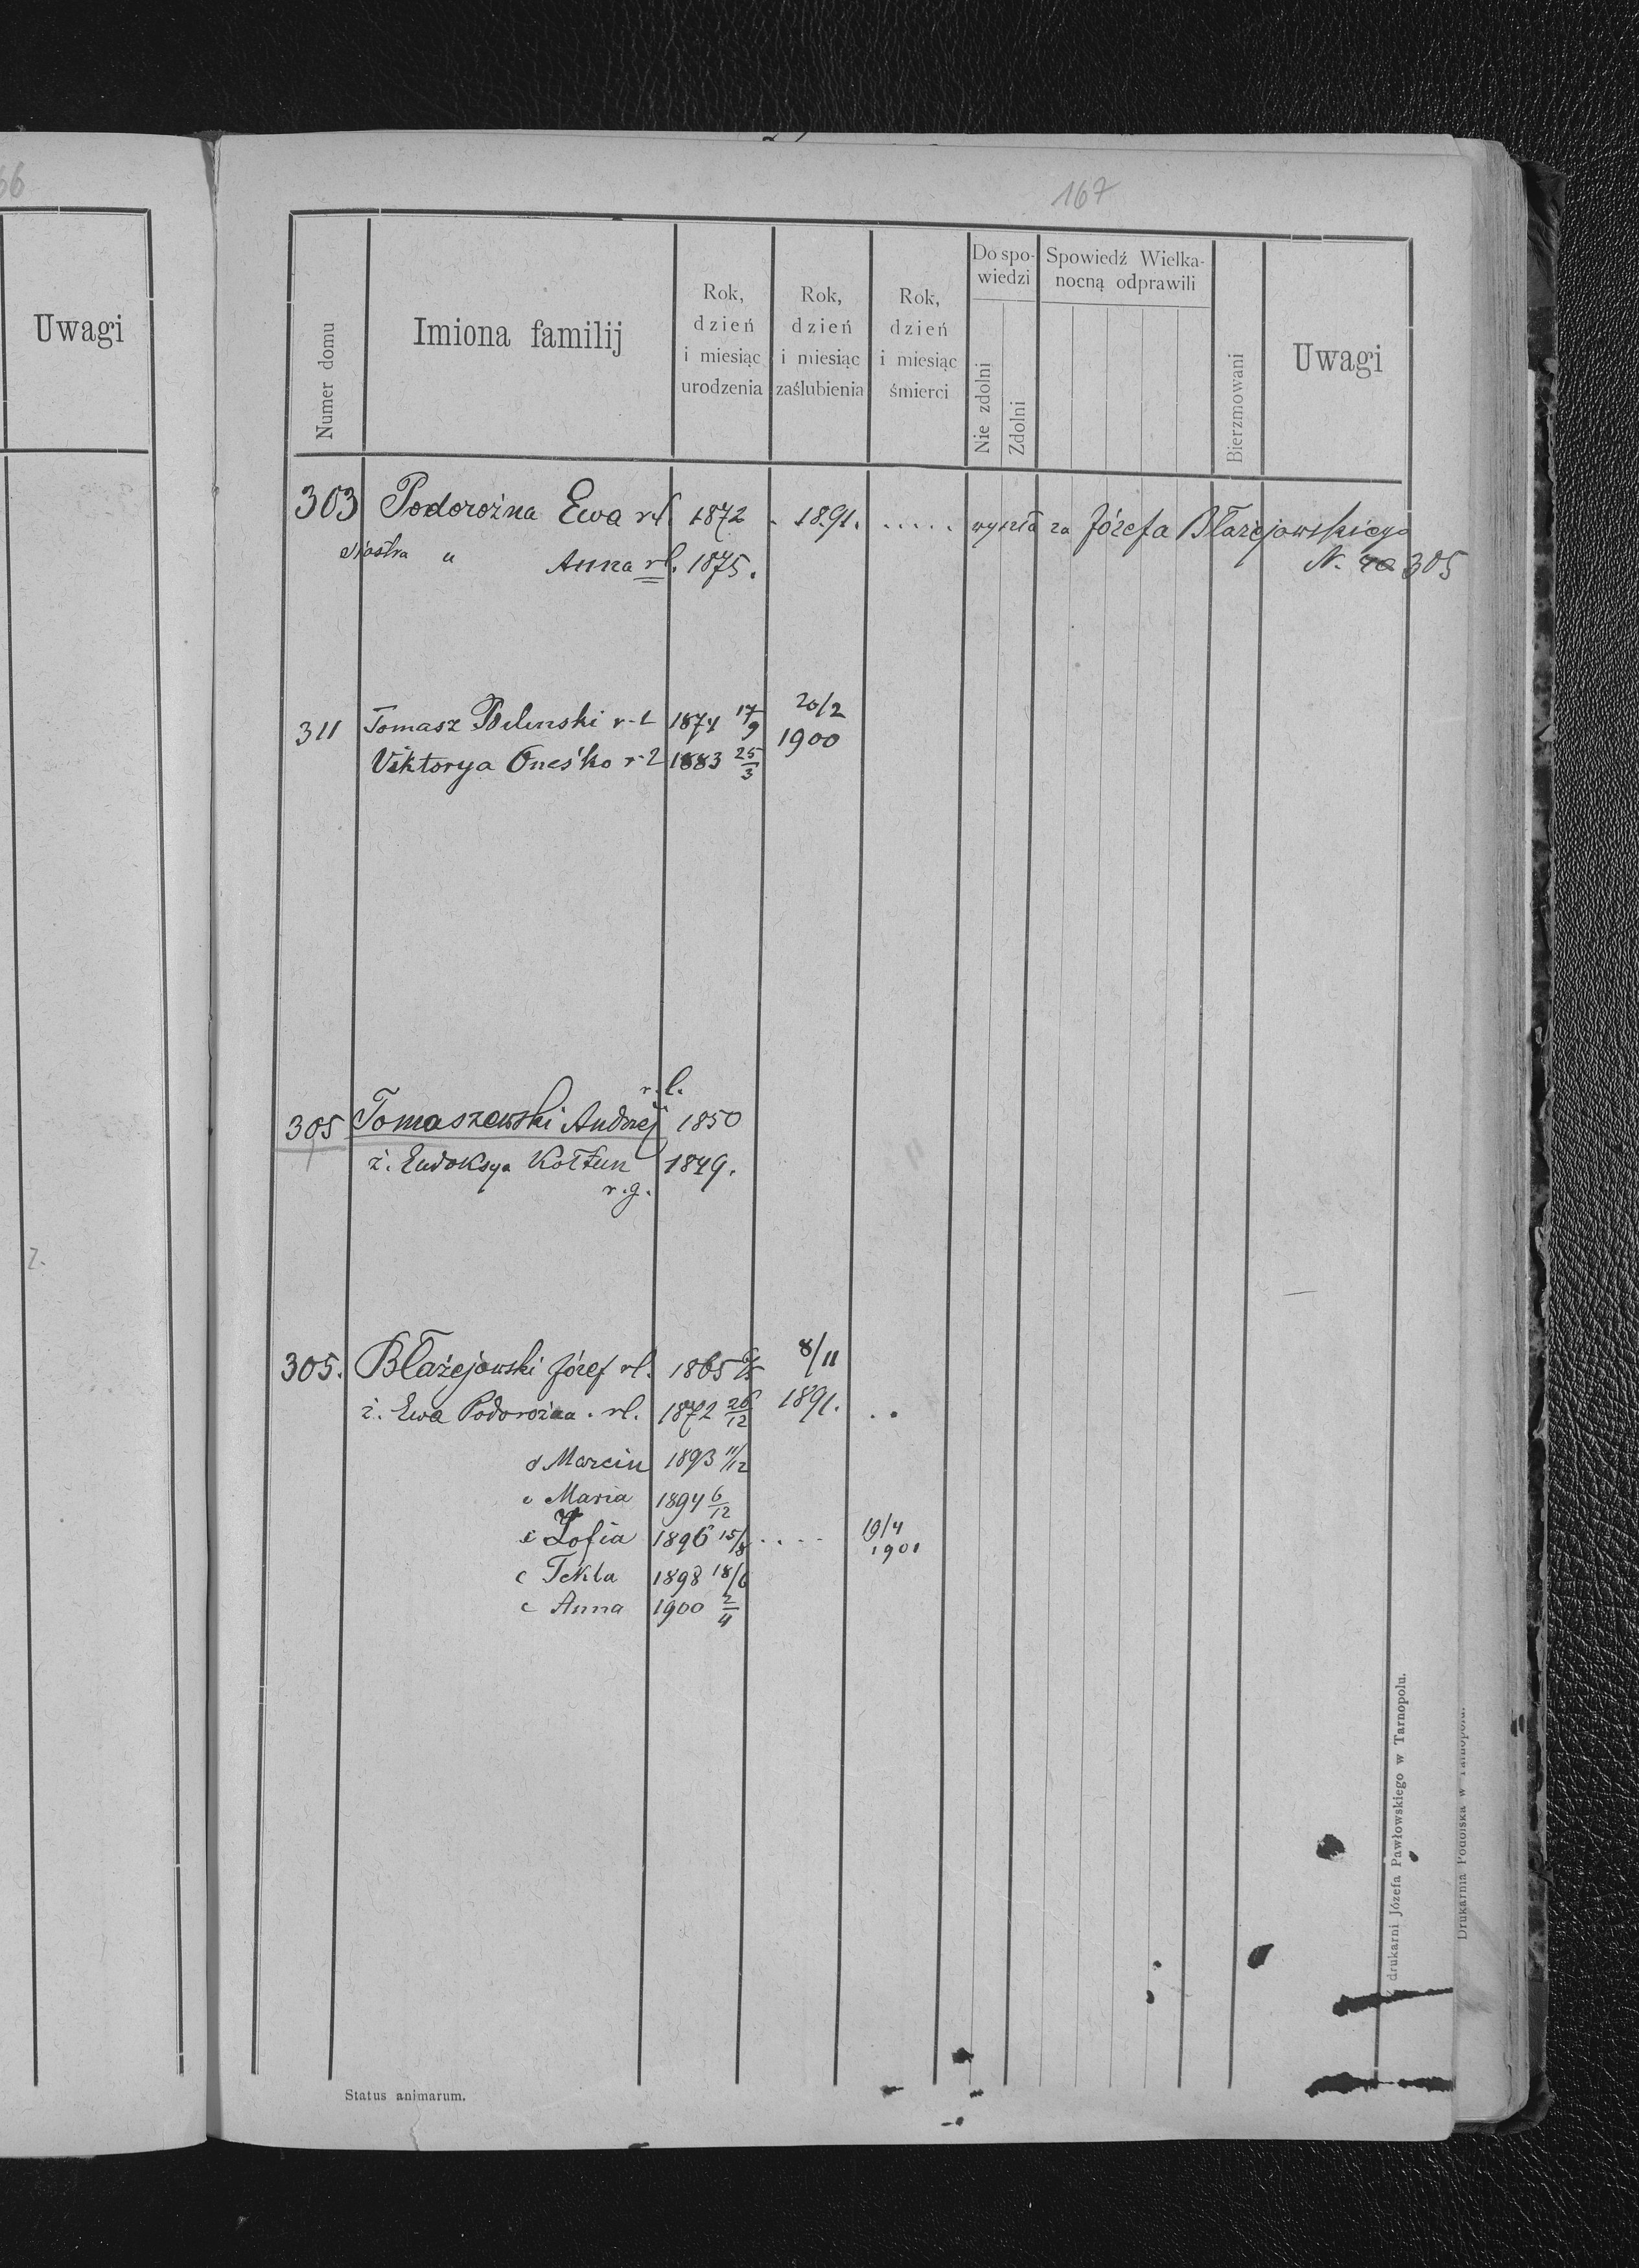 66
Uwagi
7.
167
Numer domu
Imiona familij
Rok,
dzień
i miesiąc
urodzenia
Rok,
dzień
i miesiąc
zaślubienia
Rok,
dzień
i miesiąc
śmierci
Do spo-
wiedzi
Nie zdolni
Zdolni
Spowiedź Wielka-
nocną odprawili
Bierzmowani
Uwagi
303 Podorożna Ewa rl. 1872 . 1891. ..... wyszła za Józefa Błażejowskiego
Siostra " Anna rl. 1875. N. 305
20/2
311 Tomasz Bilinski r-l 1874 17/9 1900
Viktorya Oneśko r-l 1883 25/3
r.l.
305 Tomaszewski Andrzej 1850
ż. Eudoksya Kołtun 1849.
r.g.
8/11
305. Błażejowski Józef rl. 1865
ż. Ewa Podorożna . rl. 1872 26/12 1891. ..
s Marcin 1893 11/12
c Maria 1894 6/12
c Zofia 1896 15/8 .... 19/4
1901
c Tekla 1898 18/6
c Anna 1900 2/4
Status animarum.
drukarni Józefa Pawłowskiego w Tarnopolu.
Drukarnia Podolska w Tarnopolu.